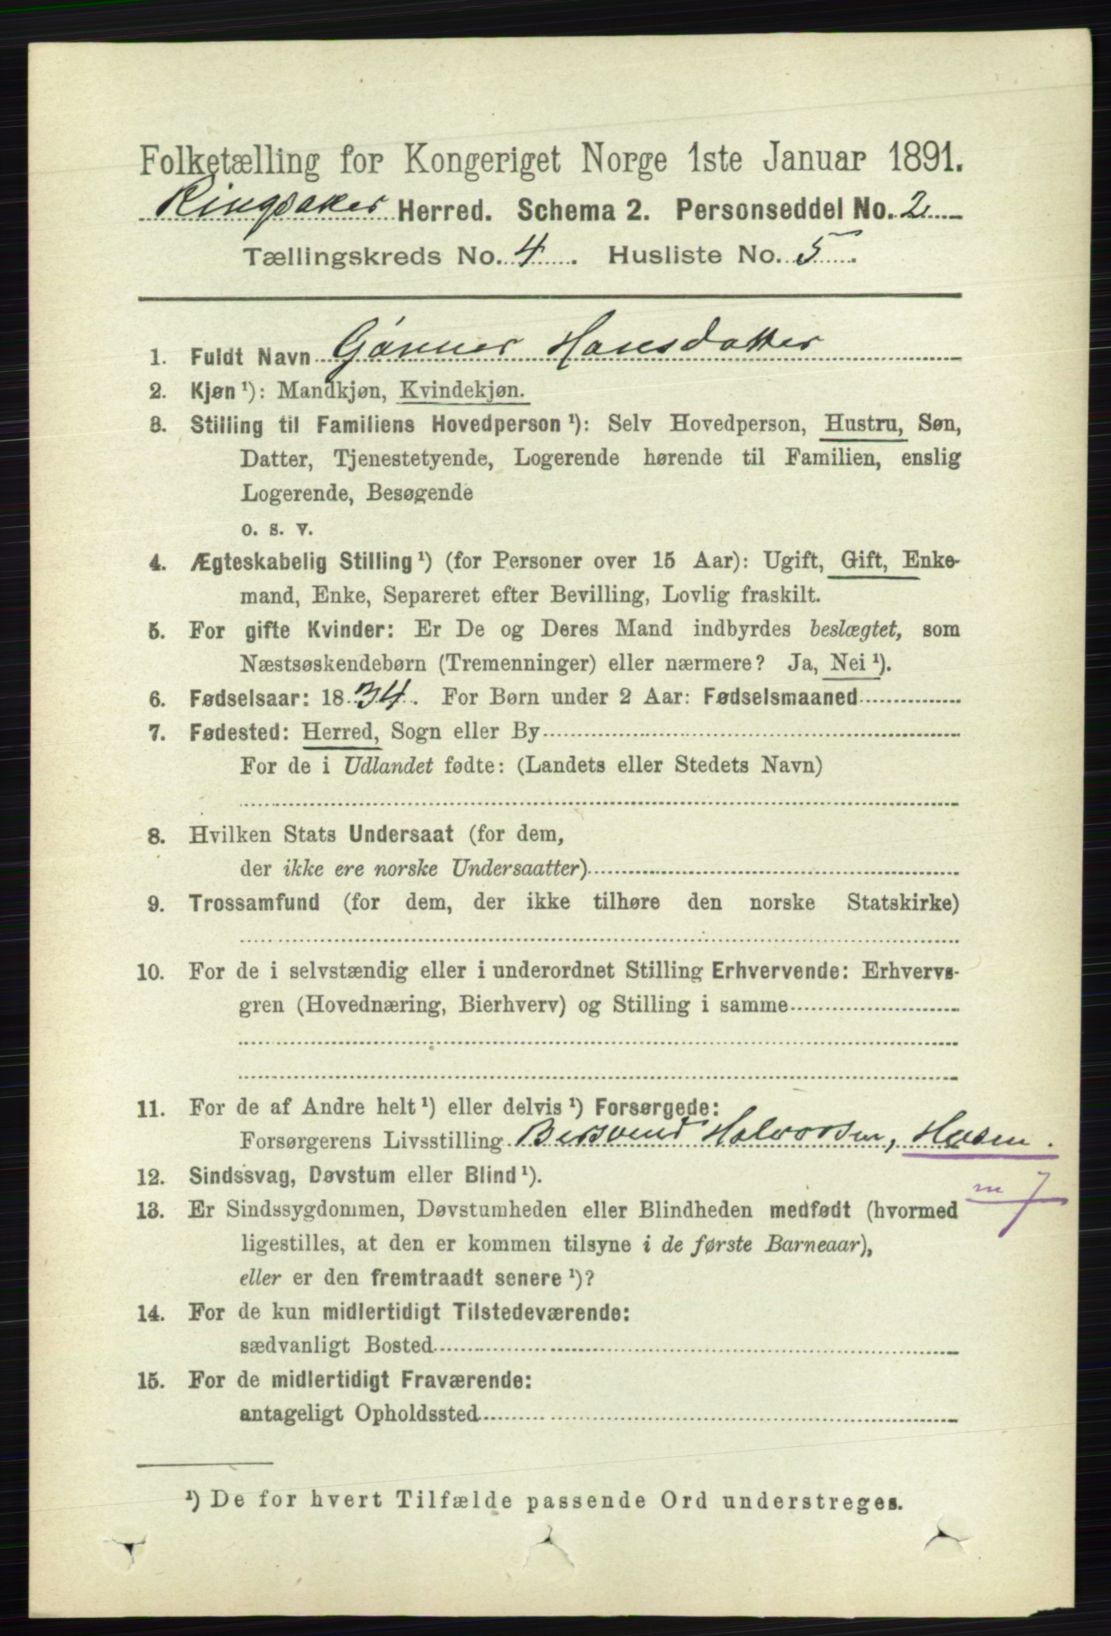 Folketælling for Kongeriget Norge 1ste Januar 1891.
Ringsaker Herred. Schema 2. Personseddel No. 2
Tællingskreds No. 4. Husliste No. 5.
1. Fuldt Navn Hansdatter
2. Kjøn ¹): Mandkjøn, Kvindekjøn.
3. Stilling til Familiens Hovedperson ¹): Selv Hovedperson, Hustru, Søn,
Datter, Tjenestetyende, Logerende hørende til Familien, enslig
Logerende, Besøgende
o. s. v.
4. Ægteskabelig Stilling ¹) (for Personer over 15 Aar): Ugift, Gift, Enke-
mand, Enke, Separeret efter Bevilling, Lovlig fraskilt.
5. For gifte Kvinder: Er De og Deres Mand indbyrdes beslægtet, som
Næstsøskendebørn (Tremenninger) eller nærmere? Ja, Nei ¹).
6. Fødselsaar: 1834. For Børn under 2 Aar: Fødselsmaaned
7. Fødested: Herred, Sogn eller By
For de i Udlandet fødte: (Landets eller Stedets Navn)
8. Hvilken Stats Undersaat (for dem,
der ikke ere norske Undersaatter)
9. Trossamfund (for dem, der ikke tilhøre den norske Statskirke)
10. For de i selvstændig eller i underordnet Stilling Erhvervende: Erhvervs-
gren (Hovednæring, Bierhverv) og Stilling i samme
11. For de af Andre helt ¹) eller delvis ¹) Forsørgede:
Forsørgerens Livsstilling Bersvend Halvorsen,
12. Sindssvag, Døvstum eller Blind ¹).
m 7
13. Er Sindssygdommen, Døvstumheden eller Blindheden medfødt (hvormed
ligestilles, at den er kommen tilsyne i de første Barneaar),
eller er den fremtraadt senere ¹)?
14. For de kun midlertidigt Tilstedeværende:
sædvanligt Bosted
15. For de midlertidigt Fraværende:
antageligt Opholdssted
¹) De for hvert Tilfælde passende Ord understreges.